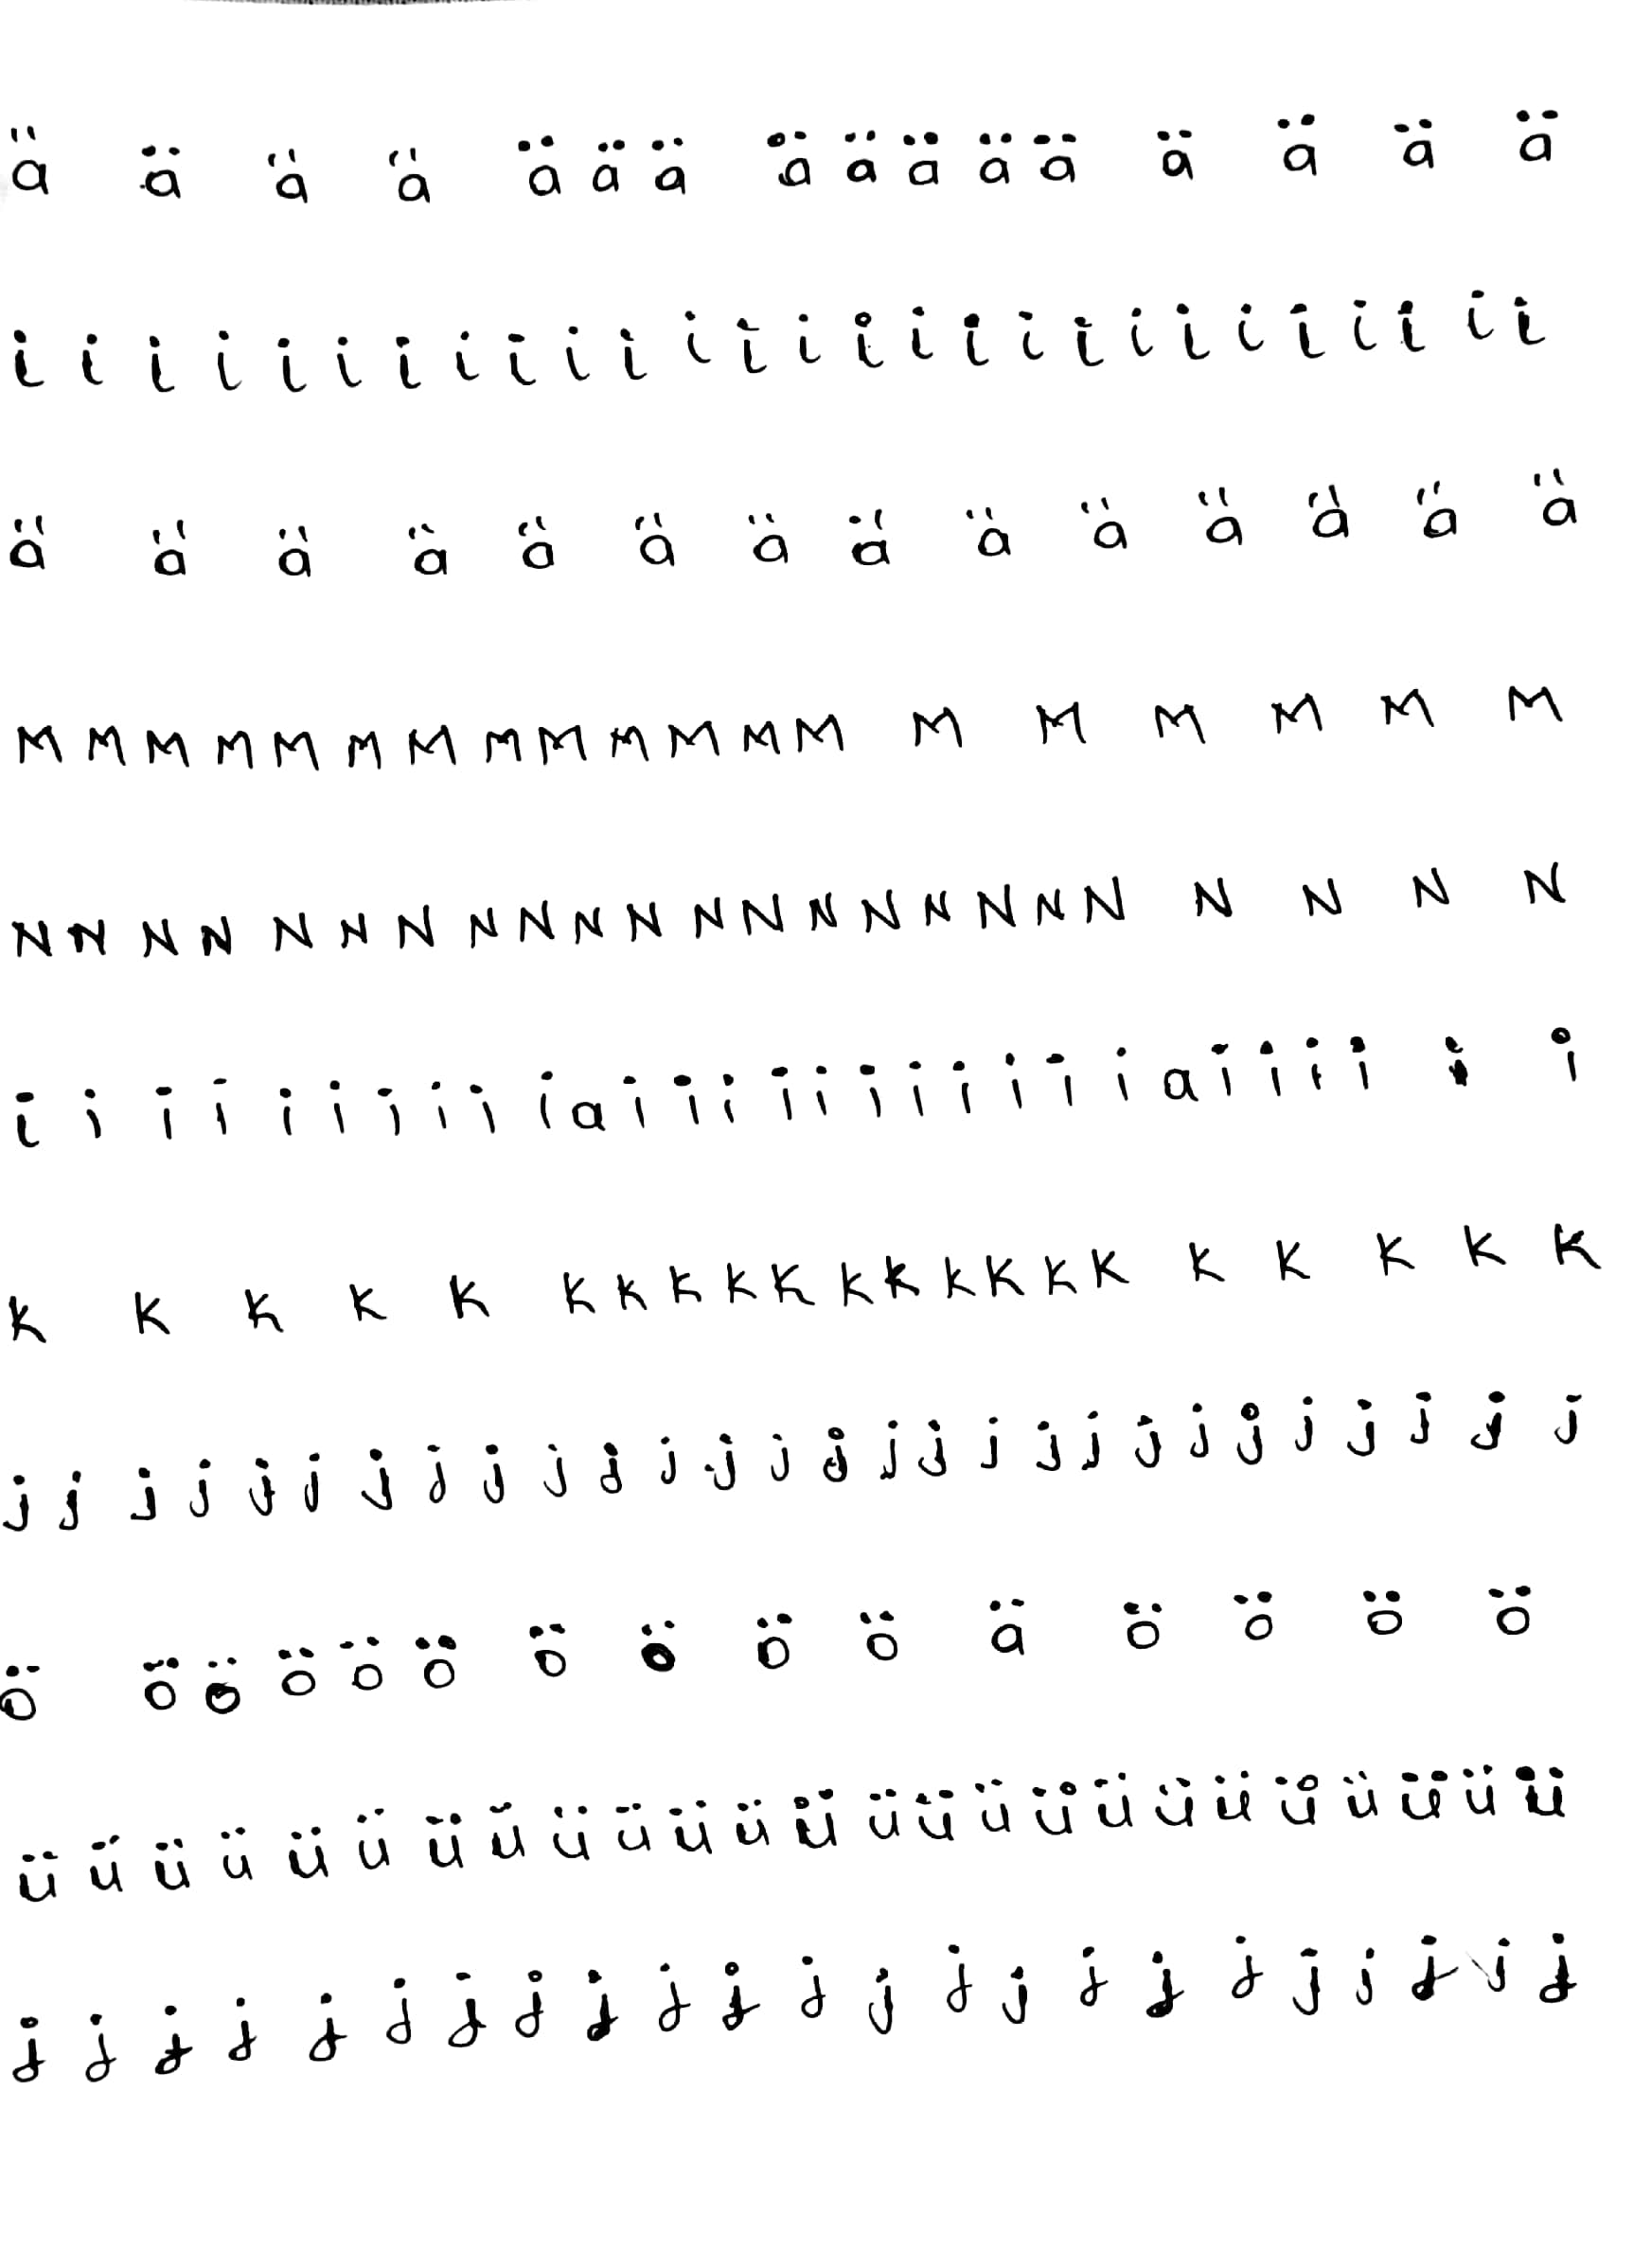 ä ä ä ä ä ä ä ä ä ä ä ä ä ä ä ä
i i i i i i i i i i i i i i i i i i i i i i i i i i
ä ä ä ä ä ä ä ä ä ä ä ä ä ä
M M M M M M M M M M M M M M M M M M M
N N N N N N N N N N N N N N N N N N N N N N N
i i i i i i i i i i a i i i i i i i i i i i i a i i i i i i
K K K K K K K K K K K K K K K K K K K K K
j j j j j j j j j j j j j j j j j j j j j j j j j j j j
ö ö ö ö ö ö ö ö ö ö ä ö ö ö ö
ü ü ü ü ü ü ü ü ü ü ü ü ü ü ü ü ü ü ü ü ü ü ü ü ü
j j j j j j j j j j j j j j j j j j j j j j j